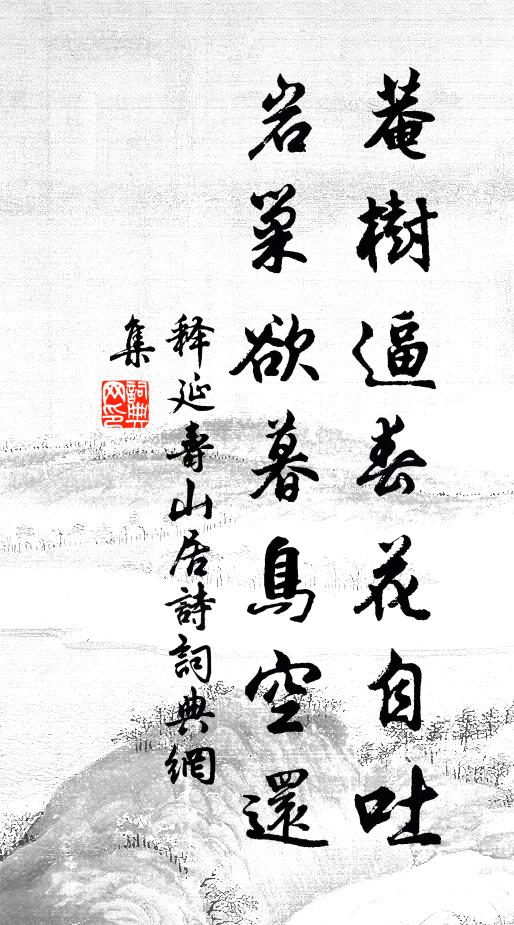 菴樹逼春花自吐
岩巢欲暮鳥空還
释延壽山居詩詞典網
集
詞典網印